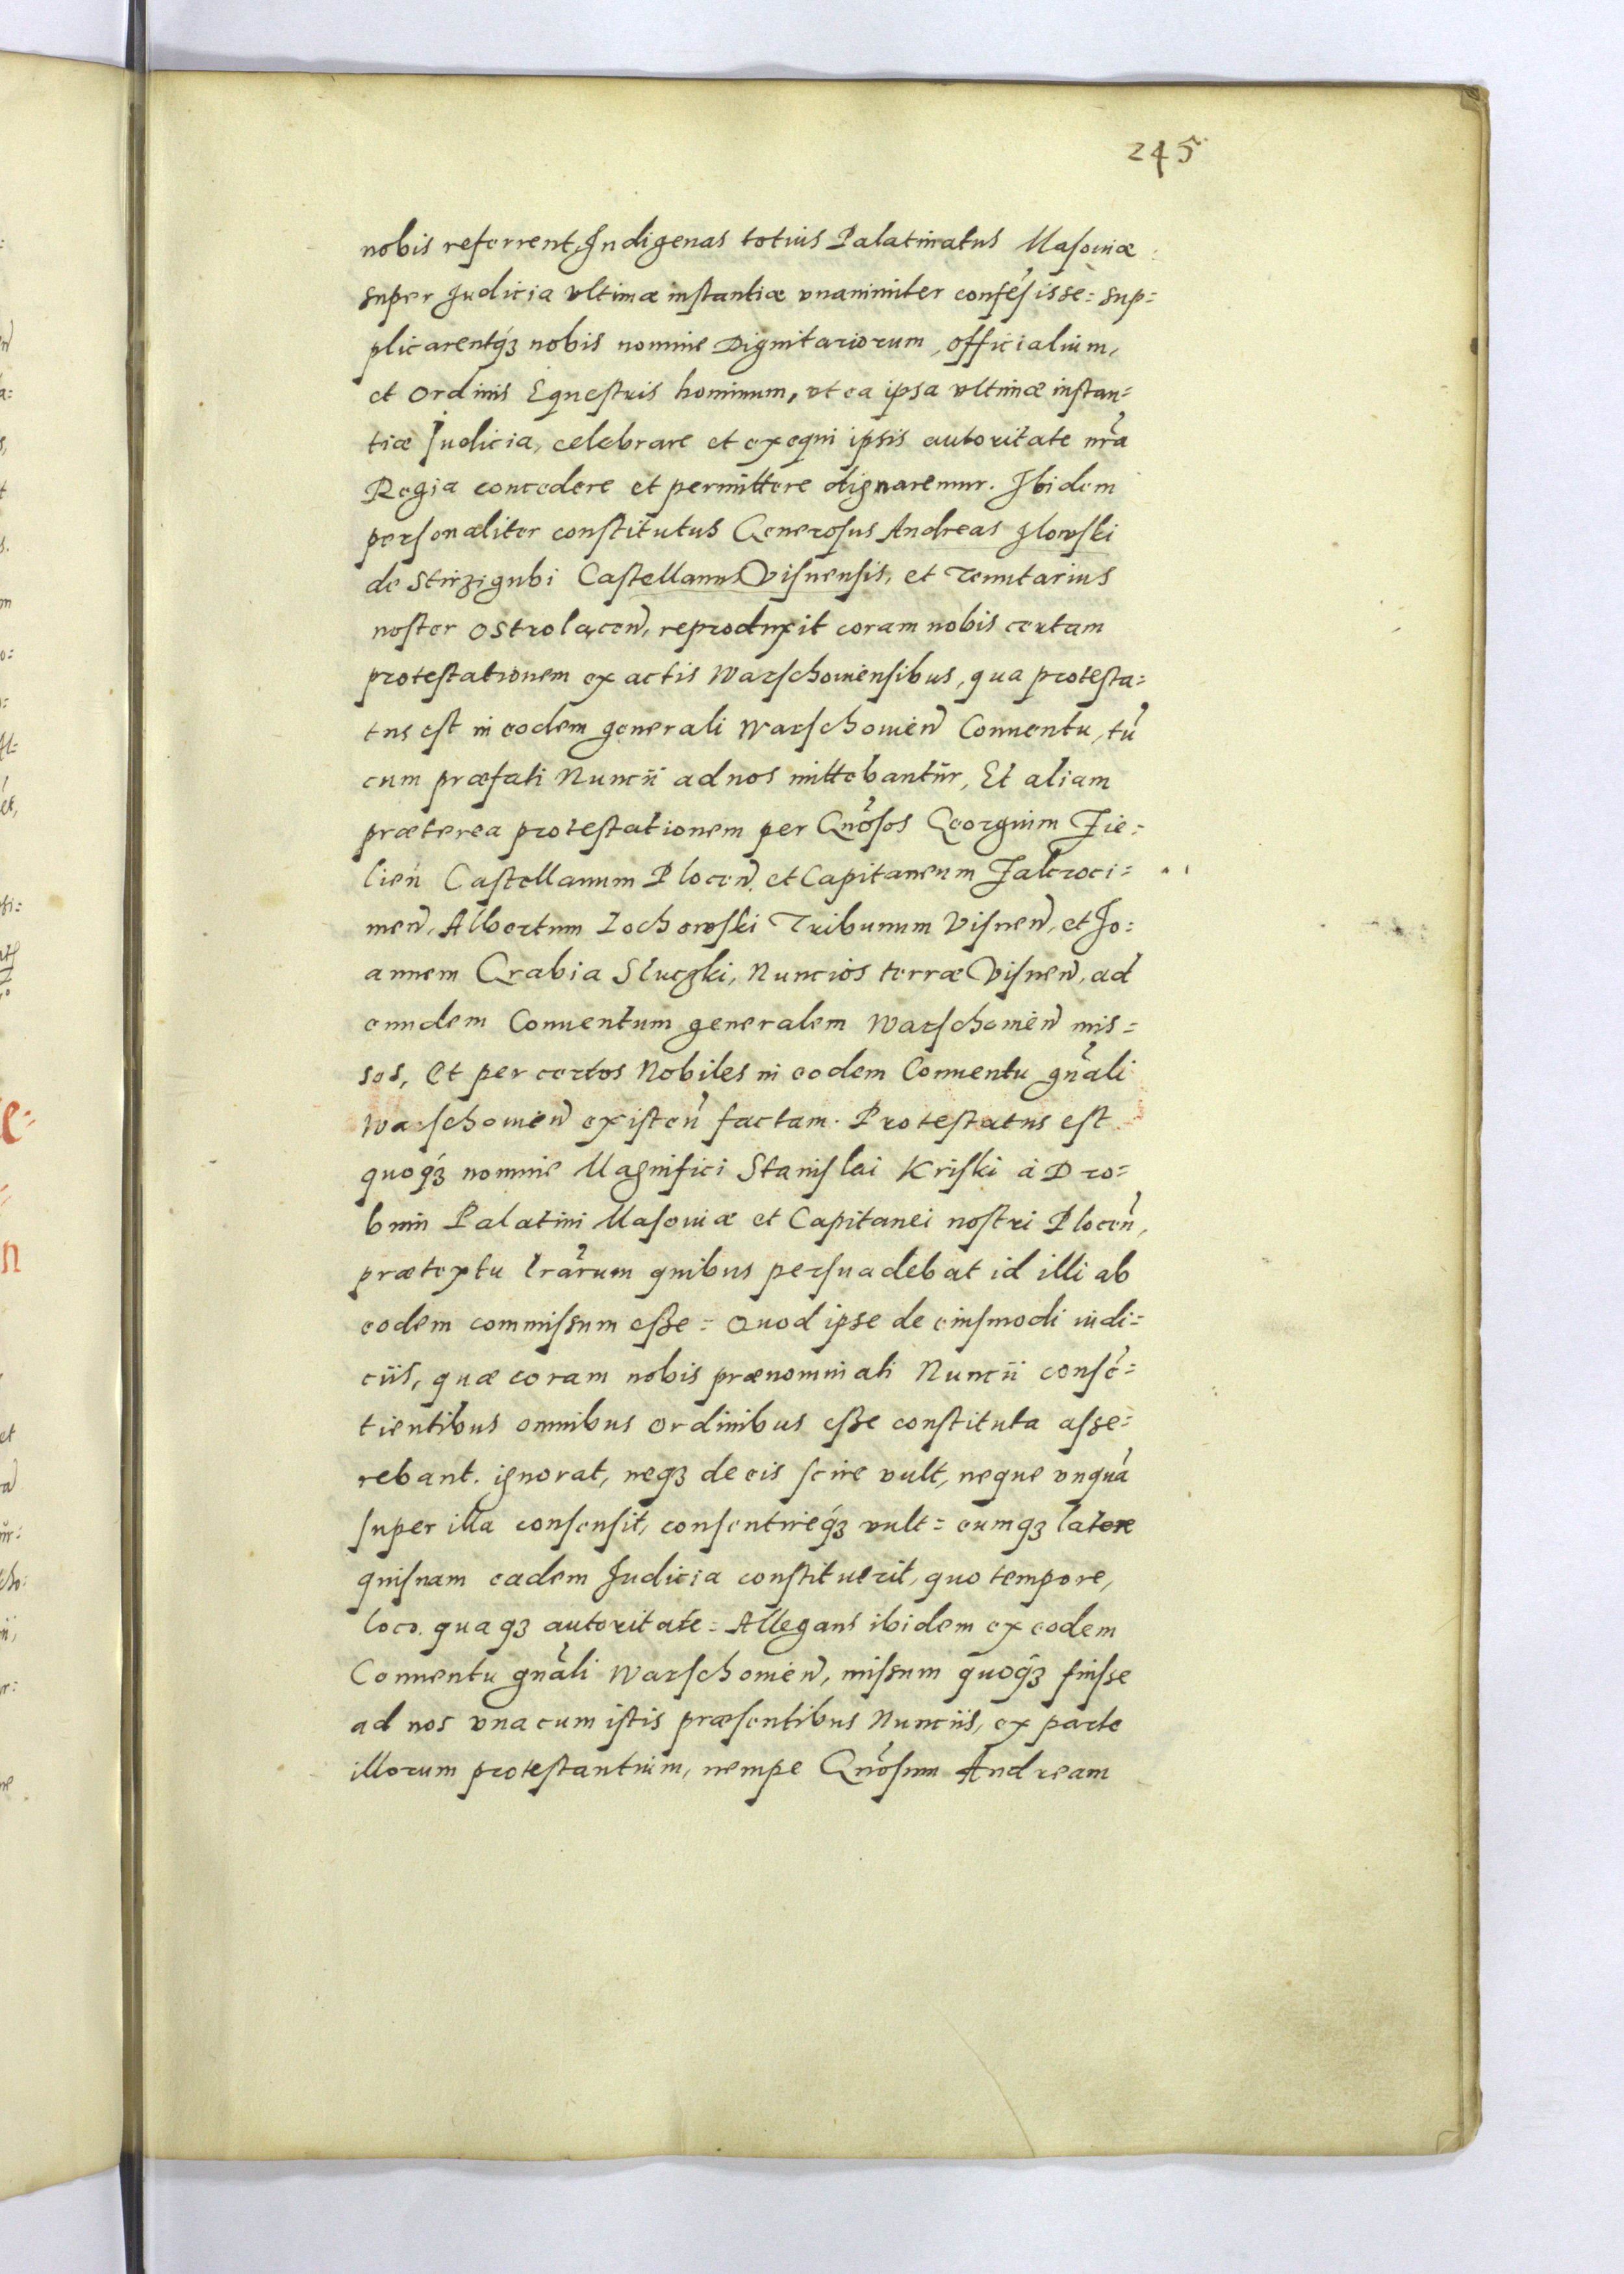 245
nobis referrent, Indigenas totius Palatinatus Masouiæ
super Iudicia vltimæ instantiæ vnanimiter consēsisse = sup=
plicarentq́ꝫ nobis nomine Dignitariorum, officialium,
et ordinis Equestris hominum, vt ea ipsa vltimæ instan=
tiæ Iudicia, celebrare et exequi ipsis autoritate nr̃a
Regia concedere et permittere dignaremur. Ibidem
personaliter constitutus Generosus Andreas Ilowski
de Strzigubi Castellanus Visnensis, et Tenutarius
noster Ostrolącen̄, reproduxit coram nobis certam
protestationem ex actis Warschouiensibus, qua protesta=
tus est in eodem generali Warschouien̄ Conuentu, tū
cum præfati Nuncii ad nos mittebantur, Et aliam
præterea protestationem per Gn̄osos Georgium Zie=
lien̄ Castellanum Plocen̄. et Capitaneum Zakroci=
men̄, Albertum Zochowski Tribunum Visnen̄, et Jo=
annem Grabia Sluczki, Nuncios terræ Visnen̄, ad
eundem Conuentum generalem Warschouien̄ mis=
sos, et per certos Nobiles in eodem Conuentu gn̄ali
Warschouien̄ existen̄ factam. Protestatus est
quoq́ꝫ nomine Magnifici Stanislai Kriski à Dro=
bnin Palatini Masouiæ et Capitanei nostri Plocen̄,
prætextu lr̄arum quibus persuadebat id illi ab
eodem commissum esse = Quod ipse de eiusmodi iudi=
ciis, quæ coram nobis prænominati Nuncii consē=
tientibus omnibus ordinibus esse constituta asse=
rebant. ignorat, neqꝫ de eis scire vult, neque vnquā
super illa consensit, consentireq́ꝫ vult = eumqꝫ latere
quisnam eadem Iudicia constituerit, quo tempore,
loco. quaqꝫ autoritate = Allegans ibidem ex eodem
Conuentu gn̄ali Warschouien̄, missum quoq́ꝫ fuisse
ad nos vna cum istis præsentibus Nunciis, ex parte
illorum protestantium, nempe Gn̄osum Andream